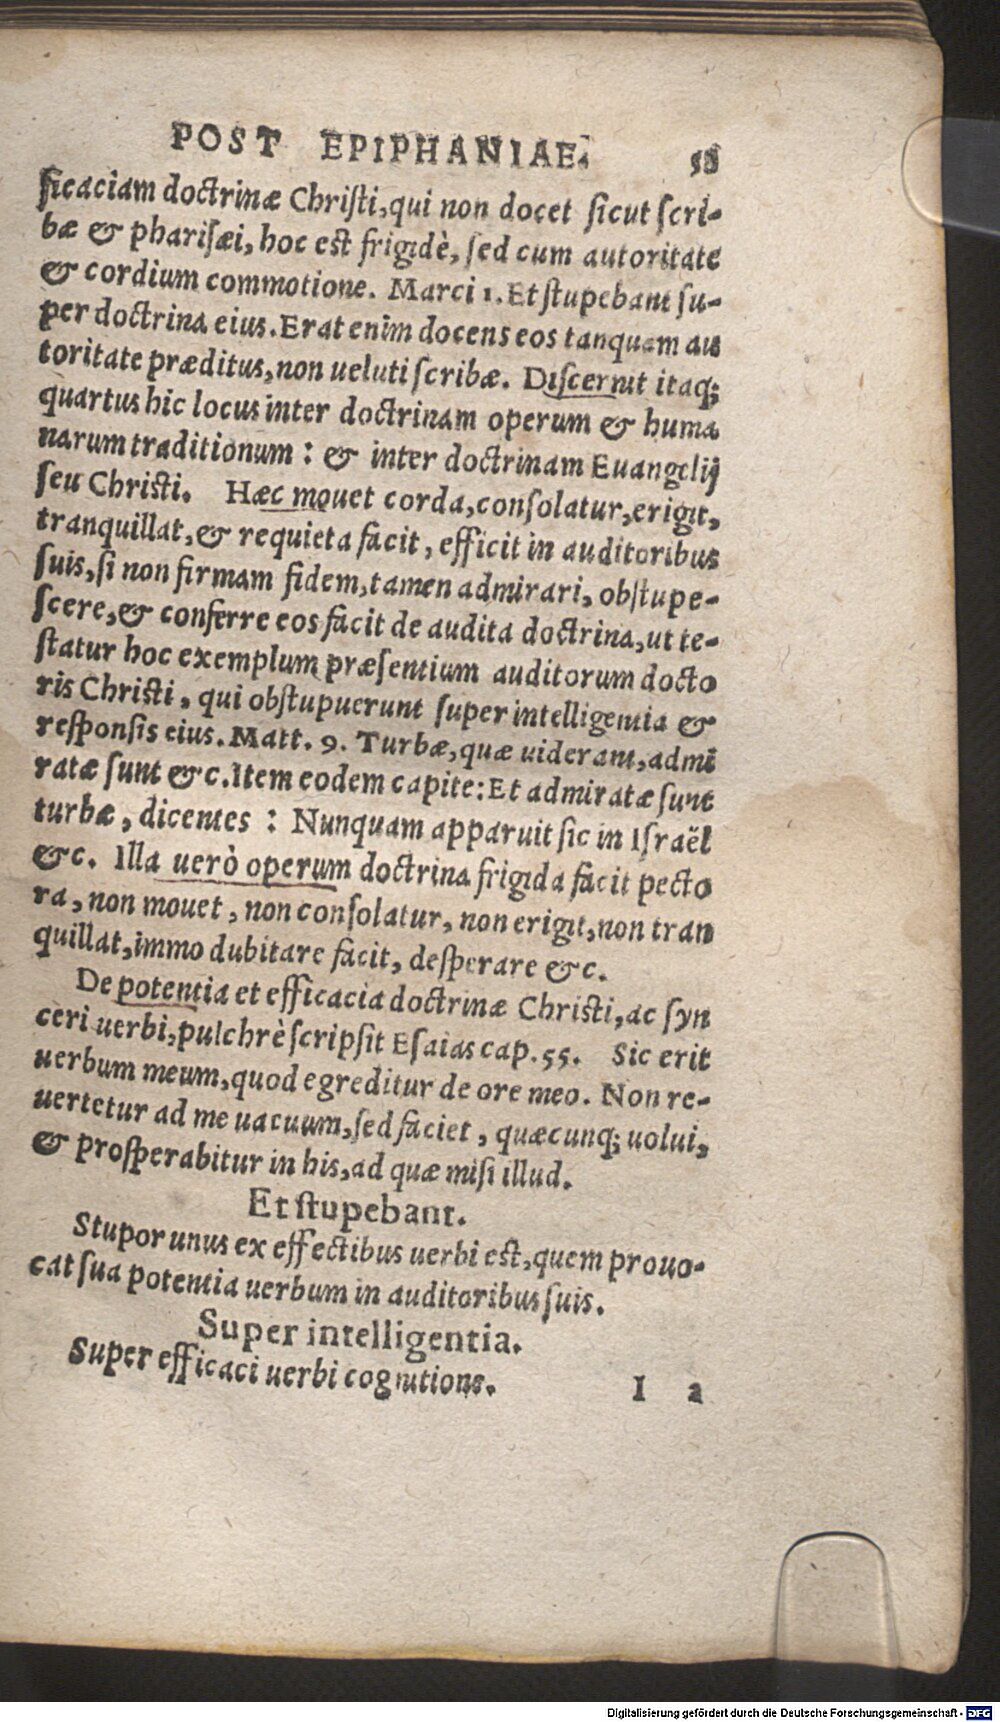 POST EPIPHANIAE.
ficaciam doctrinæ Christi, qui non docet sicut scri-
bæ & pharisæi, hoc est frigidè, sed cum autoritate
& cordium commotione. Marci 1. Et stupebant su-
per doctrina eius. Erat enim docens eos tanquam au
toritate præditus, non ueluti scribæ. Discernit itaq;
quartus hic locus inter doctrinam operum & huma
narum traditionum: & inter doctrinam Euangelij
seu Christi. Hæc mouet corda, consolatur, erigit,
tranquillat, & requieta facit, efficit in auditoribus
suis, si non firmam fidem, tamen admirari, obstupe-
scere, & conferre eos facit de audita doctrina, ut te-
statur hoc exemplum præsentium auditorum docto
ris Christi, qui obstupuerunt super intelligentia &
responsis eius. Matt. 9. Turbæ, quæ uiderant, admi
ratæ sunt &c. Item eodem capite: Et admiratæ sunt
turbæ, dicentes: Nunquam apparuit sic in Israël
&c. Illa uerò operum doctrina frigida facit pecto
ra, non mouet, non consolatur, non erigit, non tran
quillat, immo dubitare facit, desperare &c.
De potentia et efficacia doctrinæ Christi, ac syn
ceri uerbi, pulchrè scripsit Esaias cap. 55. Sic erit
uerbum meum, quod egreditur de ore meo. Non re-
uertetur ad me uacuum, sed faciet, quæcunq; uolui,
& prosperabitur in his, ad quæ misi illud.
Et stupebant.
Stupor unus ex effectibus uerbi est, quem prouo-
cat sua potentia uerbum in auditoribus suis.
Super intelligentia.
Super efficaci uerbi cognitione.
I 2
Digitalisierung gefördert durch die Deutsche Forschungsgemeinschaft - DFG